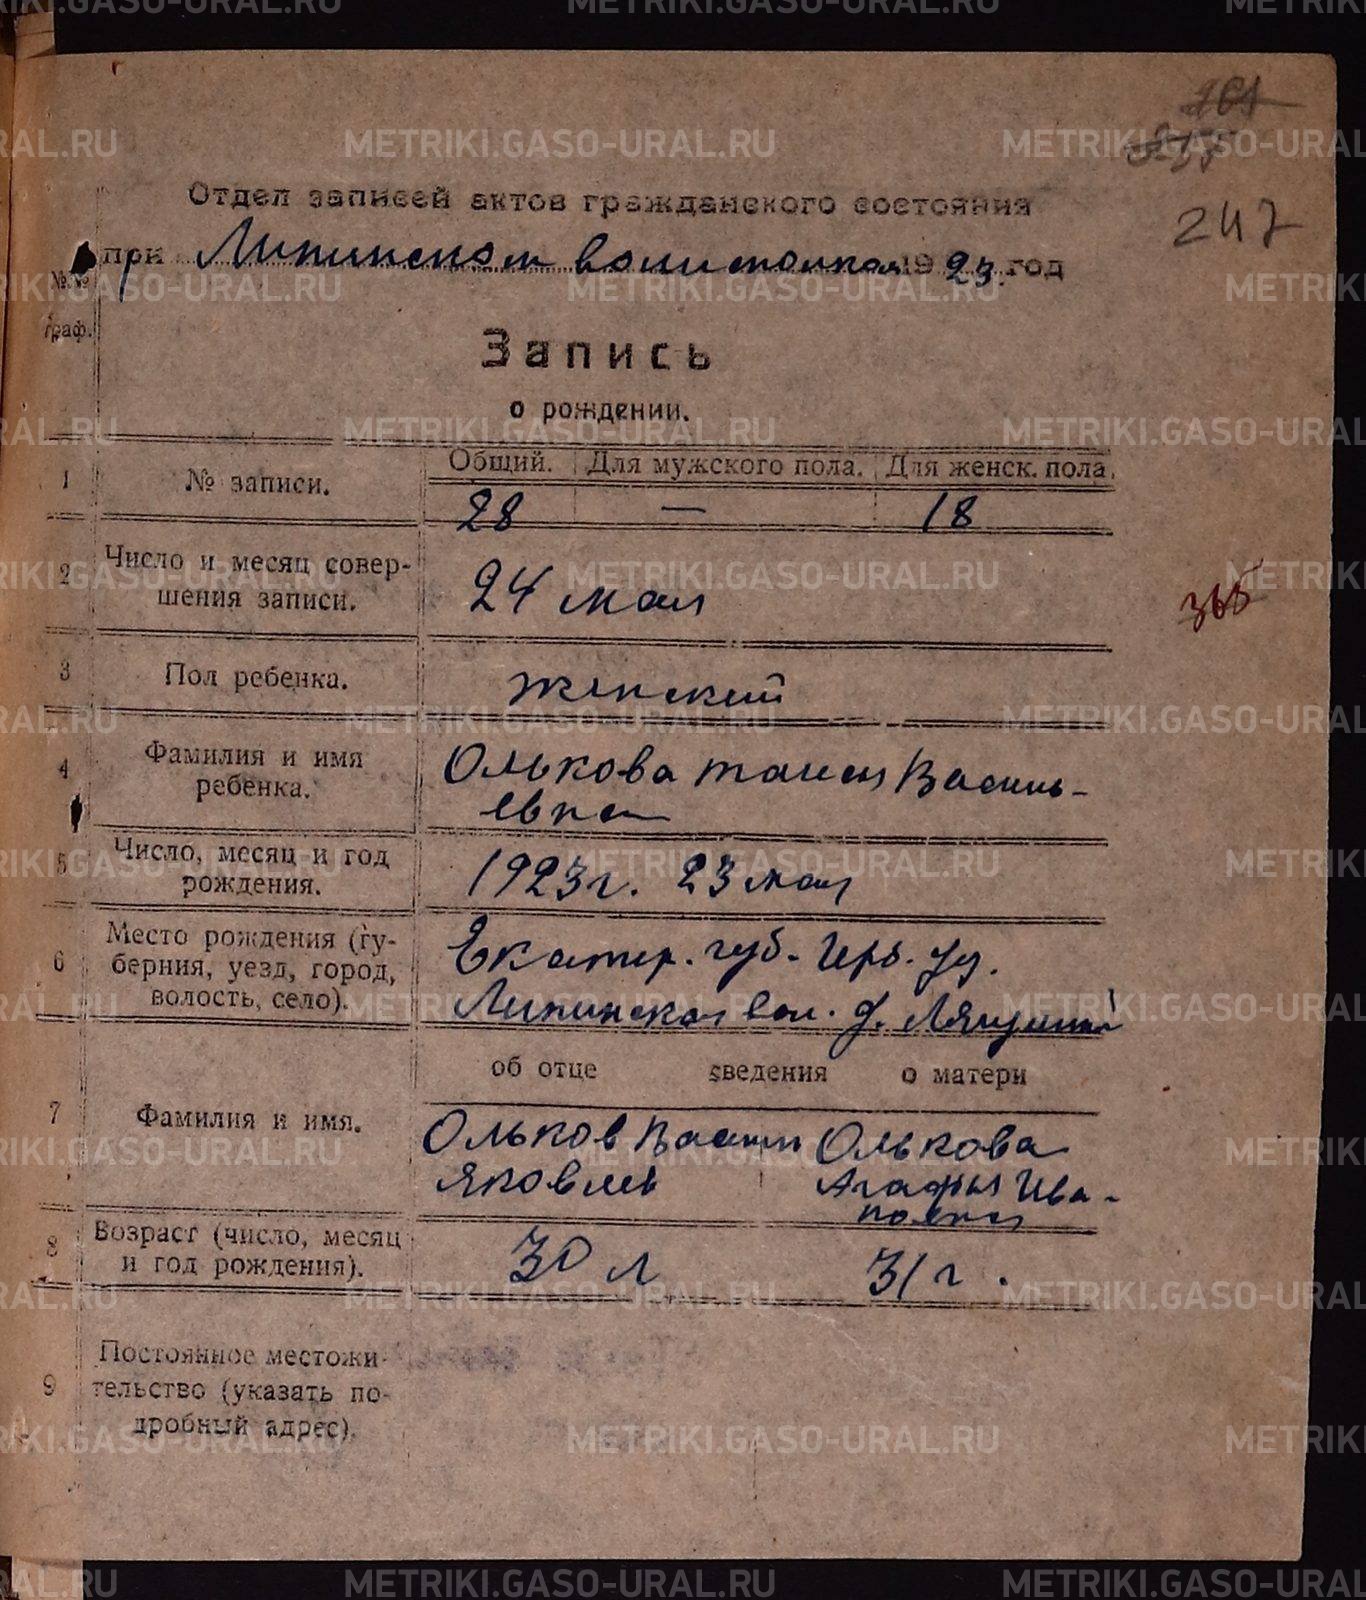 261
237
247
Отдел записей актов гражданского состояния
при Липинском волисполкоме 1923 год
№№
граф.
Запись
о рождении.
Общий. Для мужского пола. Для женск. пола.
1 № записи. 28 — 18
2 Число и месяц совер-
шения записи. 24 мая
365
3 Пол ребенка. женский
4 Фамилия и имя
ребенка. Олькова Таисья Василь-
евна
5 Число, месяц и год
рождения. 1923 г. 23 мая
6 Место рождения (гу-
берния, уезд, город,
волость, село). Екатер. губ. Ирб. уу.
Липинская вол. д.
об отце сведения о матери
7 Фамилия и имя.
Ольков Васил Олькова
Яковлев Агафья Ива-
новна
8 Возраст (число, месяц
и год рождения). 30 л 31 г.
9 Постоянное местожи-
тельство (указать по-
дробный адрес).
METRIKI.GASO-URAL.RU